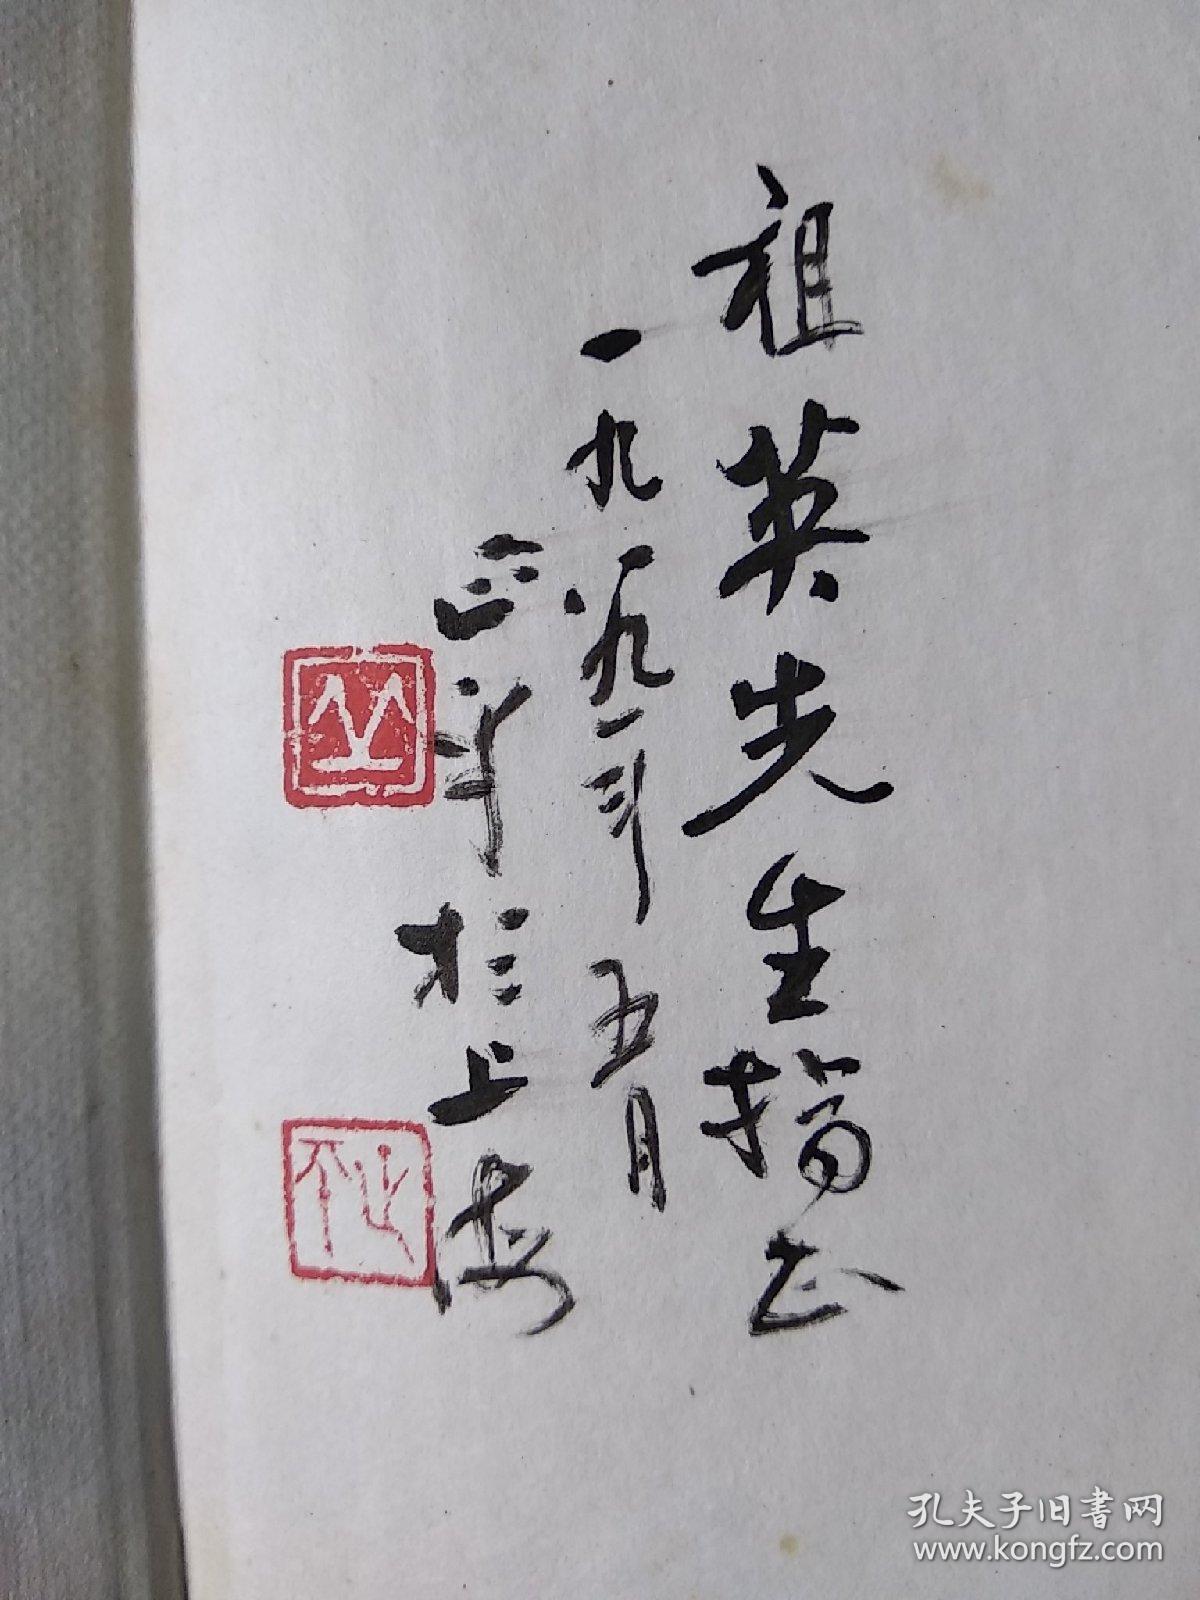 祖英先生指正
一九八九年五月
於上海
孔夫子旧书网
www.kongfz.com